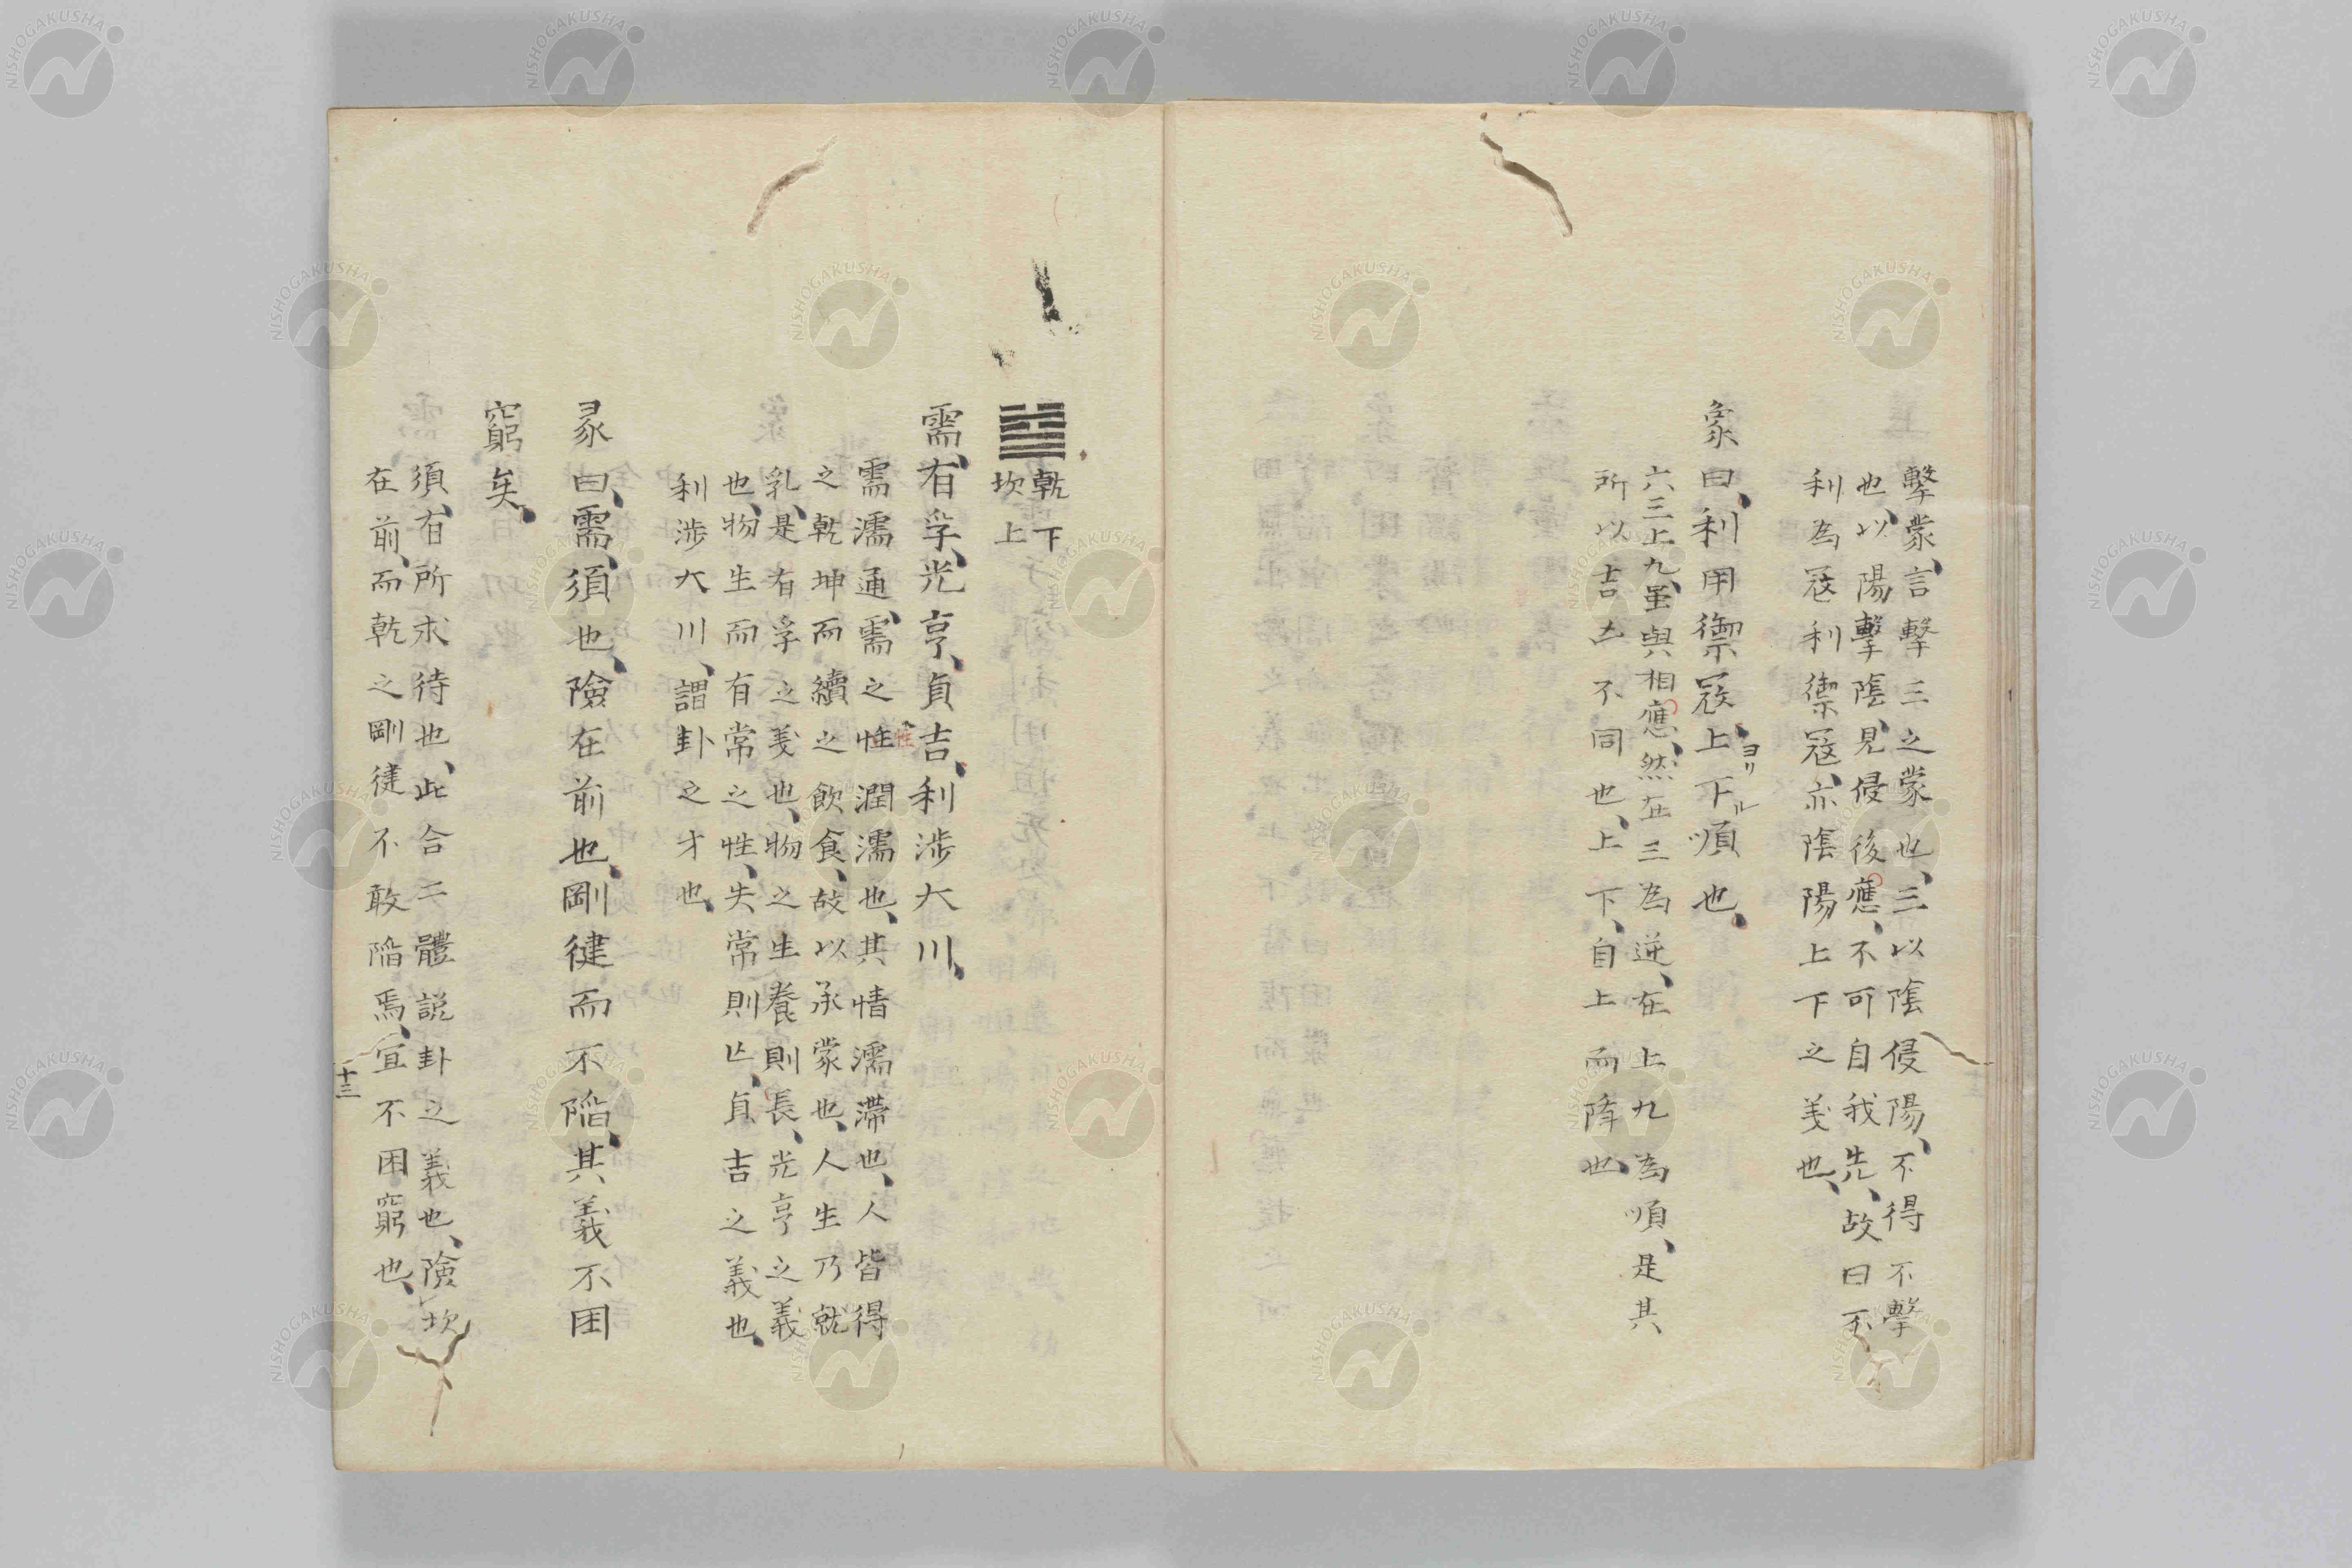 擊蒙、言擊三之蒙也、三以陰侵陽、不得不擊
也、以陽擊陰、見侵後應、不可自我先、故曰不
利為冦利禦冦、亦陰陽上下之義也、
象曰、利用禦冦、上ヨリ下ル順也、
六三上九、虽與相應、然在三為逆、在上九為順、是其
所以吉凶不同也、上下、自上而降也、
乾下
坎上
需、有孚、光亨、貞吉、利涉大川、
需濡通、需之性潤濡也、其情濡滯也、人皆得
性
之乾坤而續之飲食、故以承蒙也、人生乃就
乳、是有孚之義也、物之生養則長、光亨之義
也、物生而有常之性、失常則亡、貞吉之義也、
利涉大川、謂卦之才也、
彖曰、需、須也、險在前也、剛健而不陷、其義不困
窮矣、
須、有所求待也、此合二體説卦之義也、險坎
在前、而乾之剛健不敢陷焉、宜不困窮也、
十三
NISHOGAKUSHA